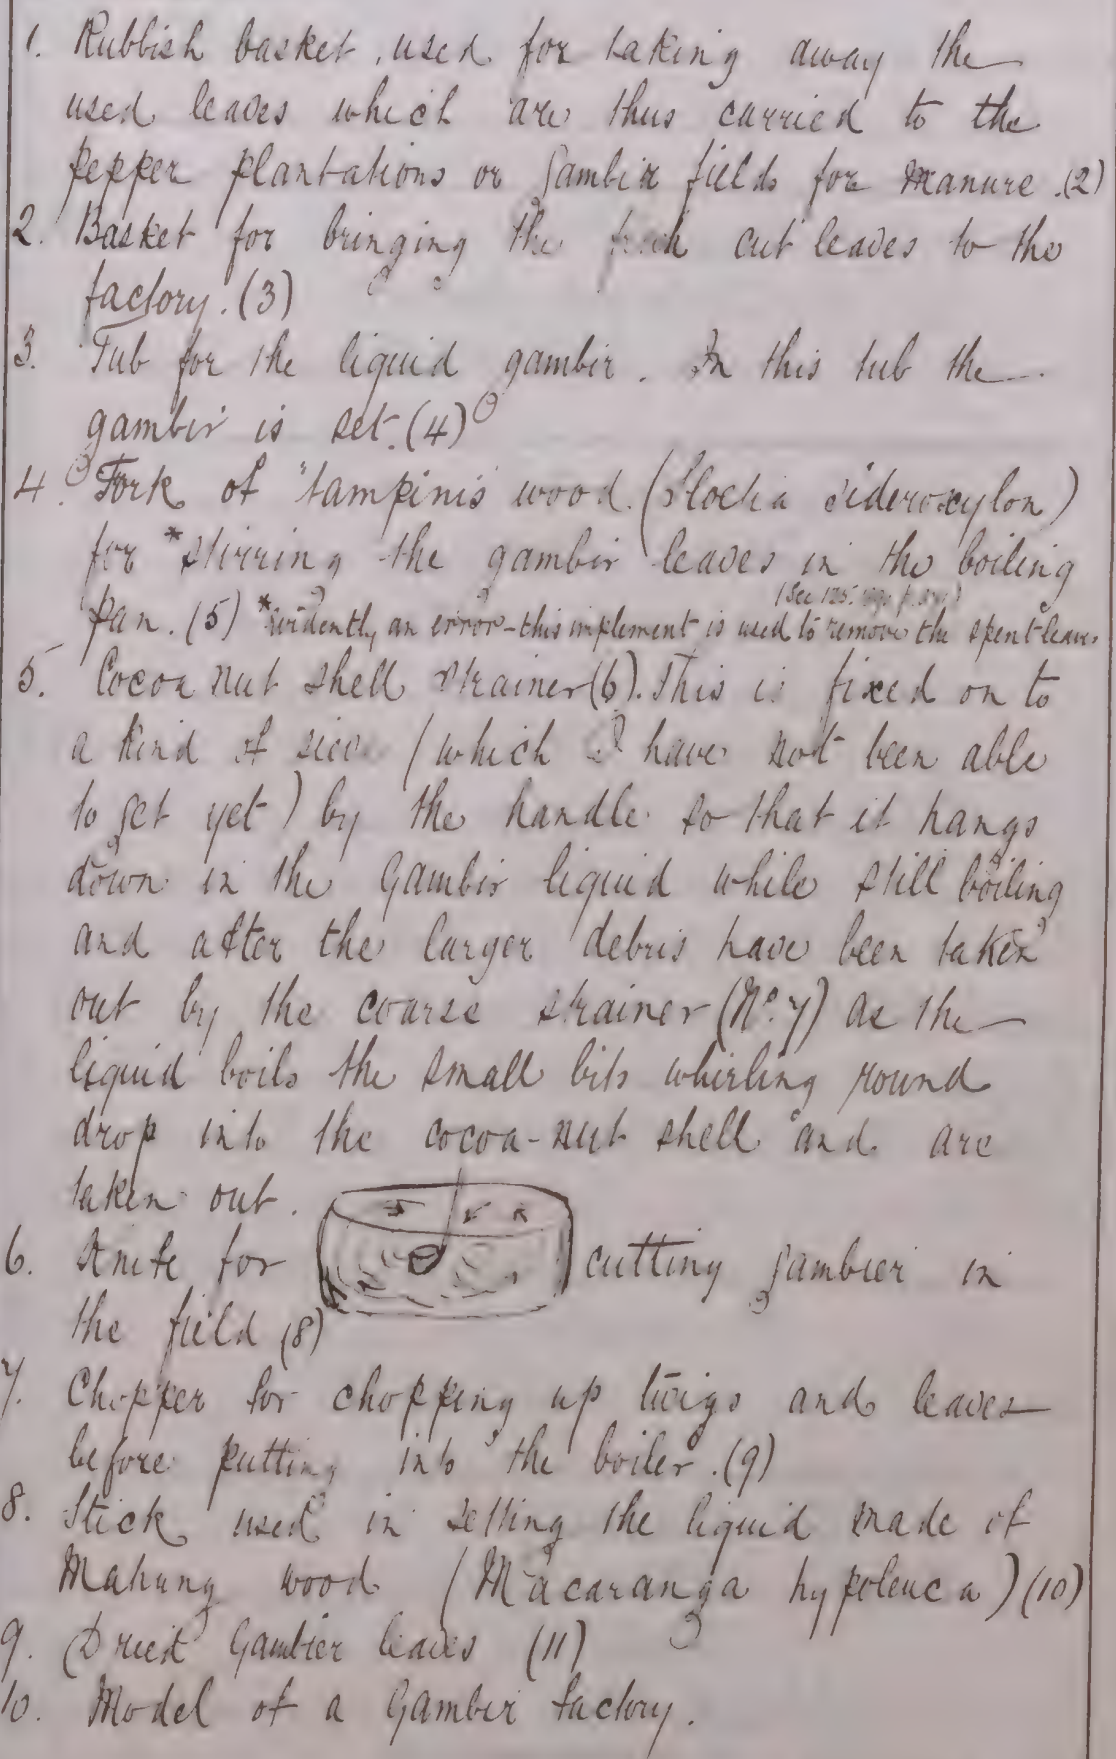 1. Rubbish basket, used for taking away the
used leaves which are thus carried to the
pepper plantations or Gambir fields for manure. (2)
2. Basket for bringing the fresh cut leaves to the
factory. (3)
3. Tub for the liquid gambir. In this tub the
gambir is set. (4)
4. Fork of "tampinis wood. (Sloetia sideroxylon)
for *stirring the gambir leaves in the boiling
(See
pan. (5) *evidently an error - this implement is used to remove the spent leaves
5. Cocoa nut shell strainer (6). This is fixed on to
a kind of sieve (which I have not been able
to get yet) by the handle so that it hangs
down in the Gambir liquid while still boiling
and after the larger debris have been taken
out by the coarse strainer (No. 7) as the
liquid boils the small bits whirling round
drop into the cocoa-nut shell and are
taken out.
6. Knife for cutting gambier in
the field (8)
7. Chopper for chopping up twigs and leaves
before putting into the boiler. (9)
8. Stick used in setting the liquid made of
Mahung wood (Macaranga hypoleuca) (10)
9. Dried Gambier leaves (11)
10. Model of a Gambir factory.